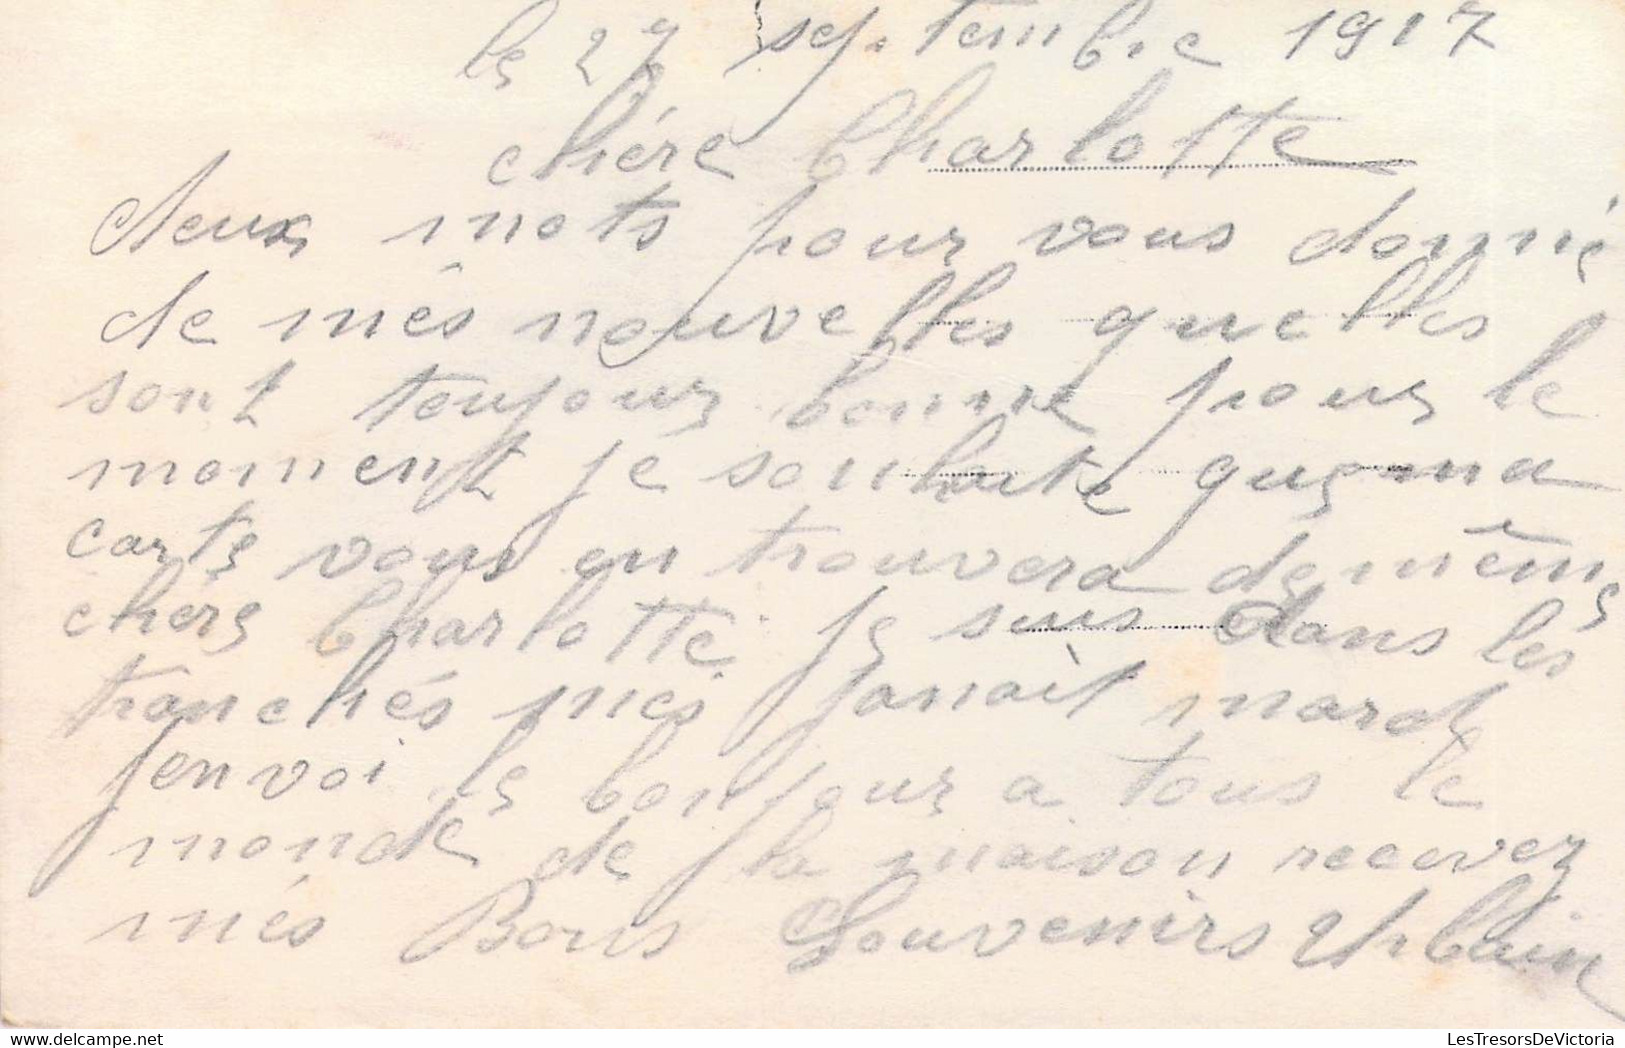 le 27 septembre 1917
chére Charlotte
deux mots pour vous donnié
de més nouvelles quelles
sont toujour bonne pour le
moment je souhaite que ma
carte vous en trouvera de même
chére Charlotte je suis dans les
tranchés mes janait mard
jenvoi le bonjour a tous le
monde de la maison recevez
més Bons Souvenirs Urbain
LesTresorsDeVictoria